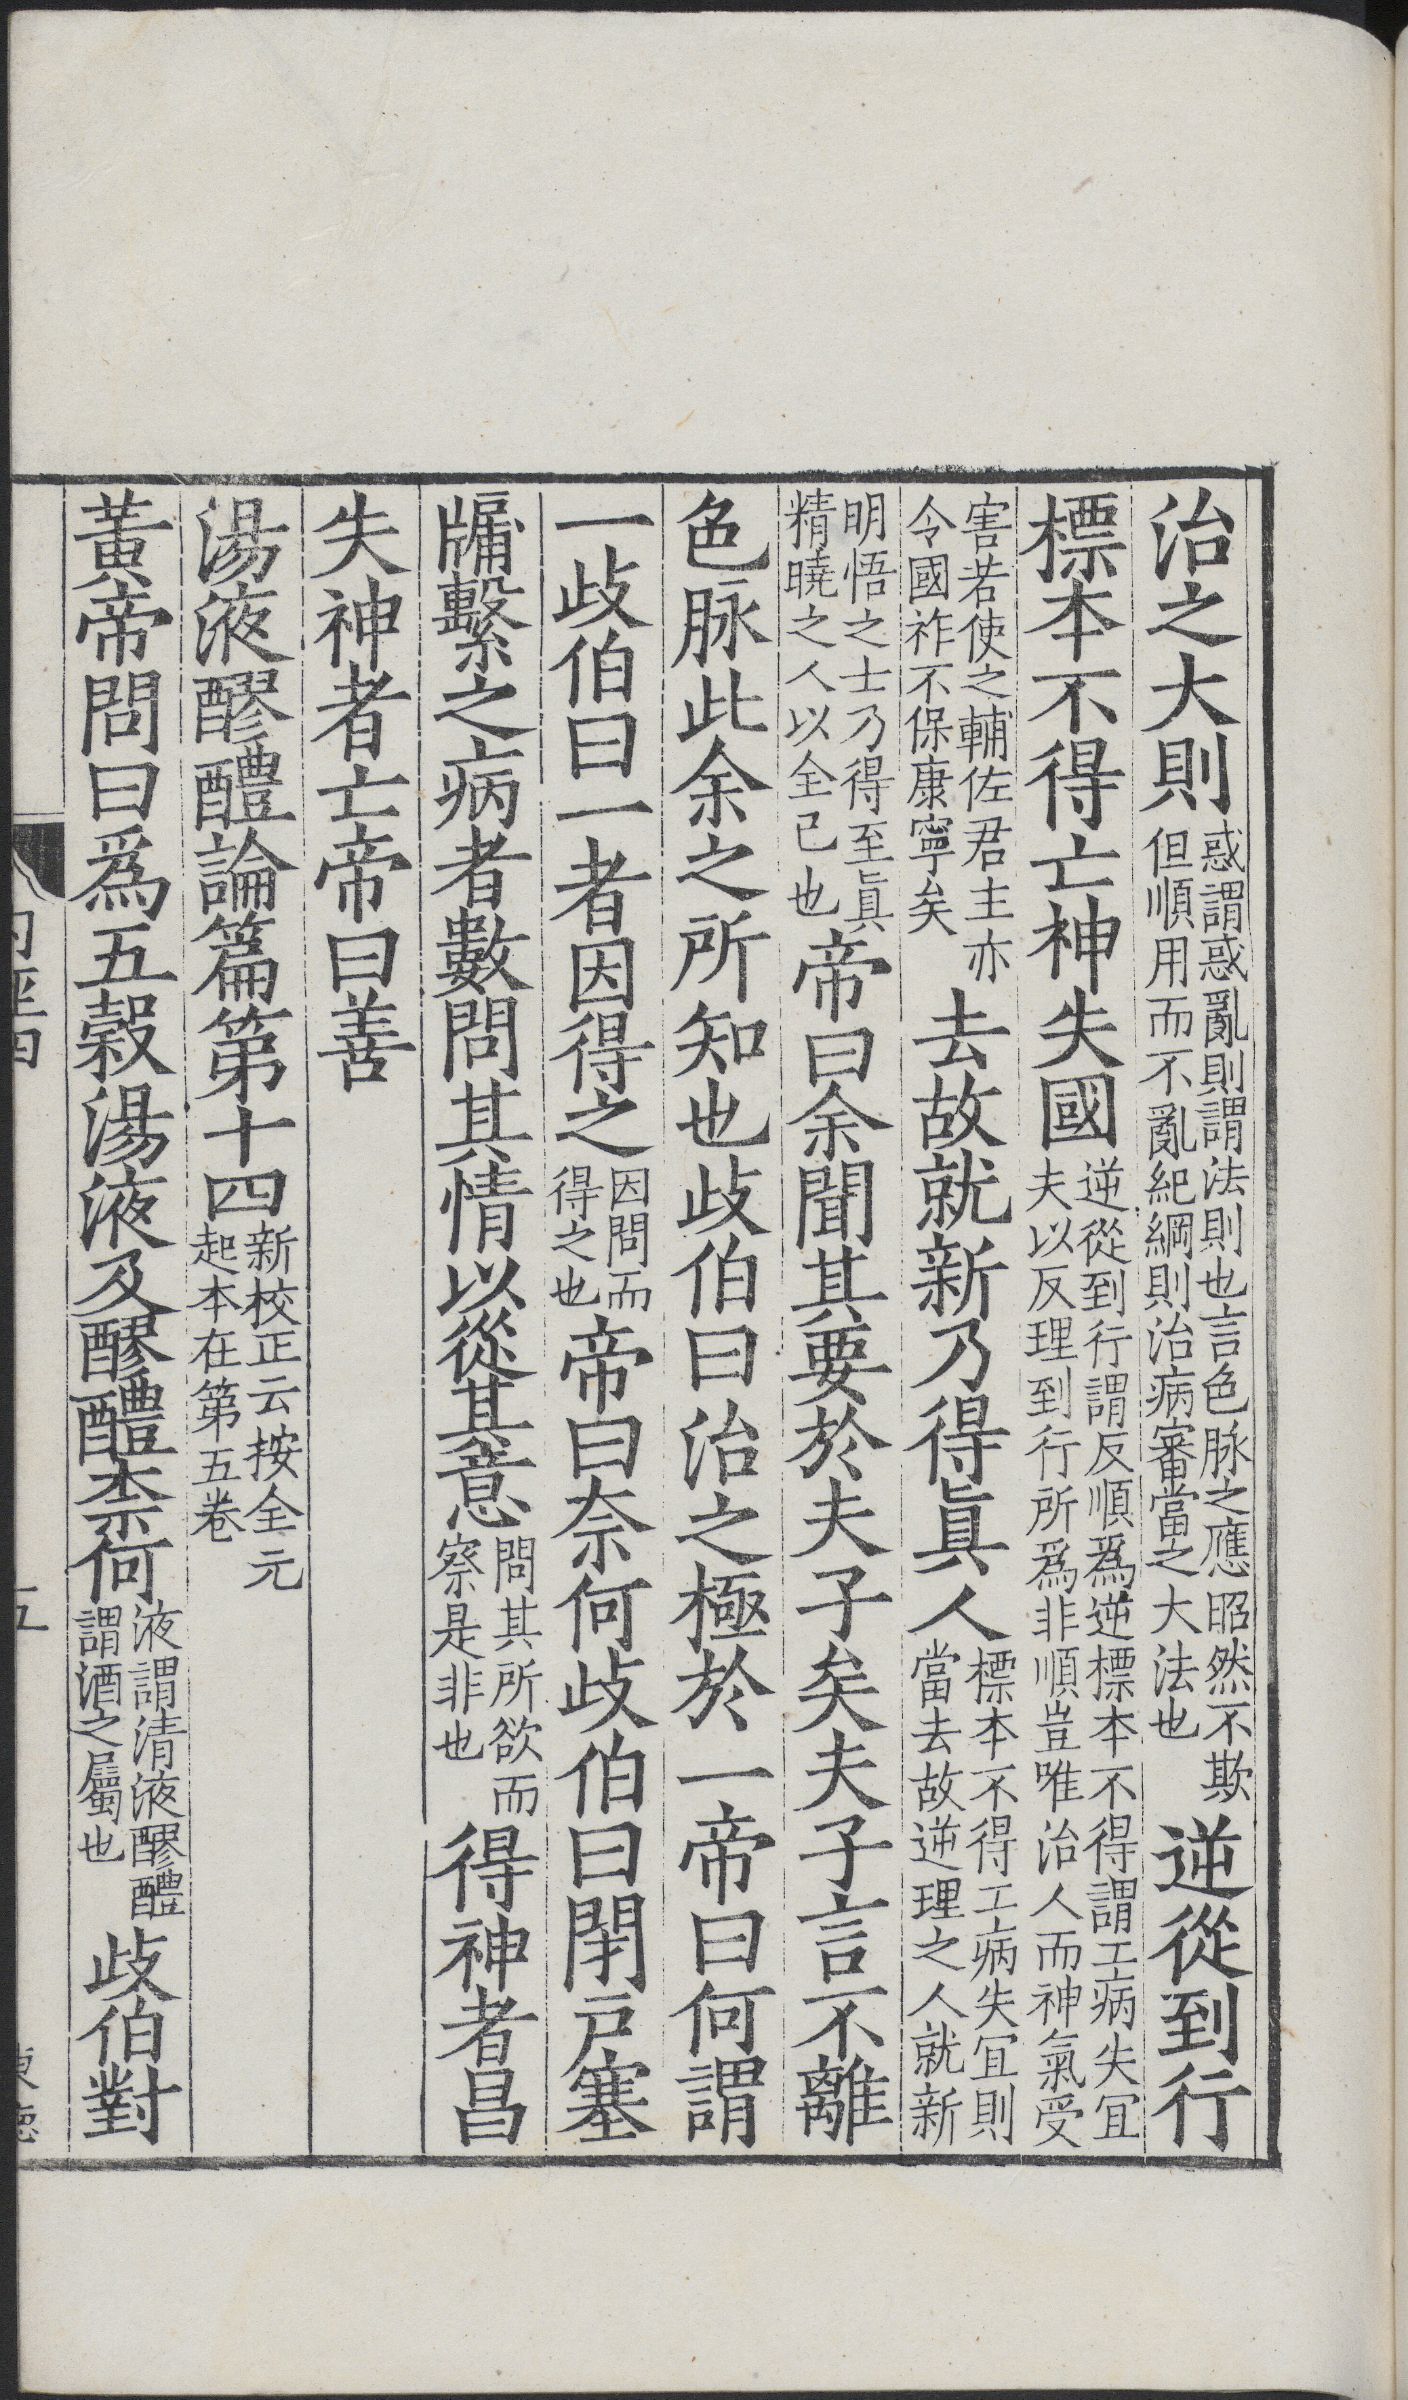 治之大則惑謂惑亂則謂法則也言色脉之應昭然不欺但順用而不亂紀綱則治病審當之大法也逆從到行
標本不得亡神失國逆從到行謂反順爲逆標本不得謂工病失宜夫以反理到行所爲非順豈唯治人而神氣受
害若使之輔佐君主亦令國祚不保康寧矣去故就新乃得眞人標本不得工病失宜則當去故逆理之人就新
明悟之士乃得至眞精曉之人以全已也帝曰余聞其要於夫子矣夫子言不離
色脉此余之所知也歧伯曰治之極於一帝曰何謂
一歧伯曰一者因得之因問而得之也帝曰奈何歧伯曰閉戸塞
牖繫之病者數問其情以從其意問其所欲而察是非也得神者昌
失神者亡帝曰善
湯液醪醴論篇第十四新校正云按全元起本在第五卷
黃帝問曰爲五穀湯液及醪醴柰何液謂清液醪醴謂酒之屬也歧伯對